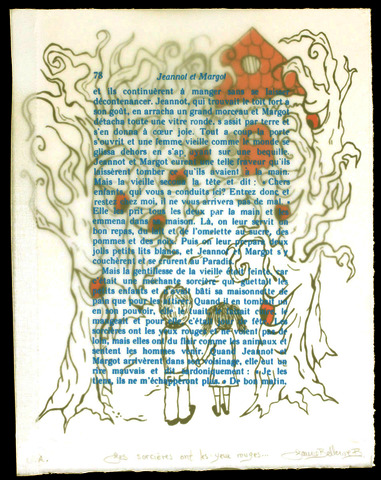 78 Jeannot et Margot
et ils continuèrent à manger sans se laisser
décontenancer. Jeannot, qui trouvait le toit fort à
son goût, en arracha un grand morceau et Margot
détacha toute une vitre ronde, s'assit par terre et
s'en donna à cœur joie. Tout à coup la porte
s'ouvrit et une femme, vieille comme le monde se
glissa dehors en s'appuyant sur une béquille.
Jeannot et Margot eurent une telle frayeur qu'ils
laissèrent tomber ce qu'ils avaient à la main.
Mais la vieille secoua la tête et dit : « Chers
enfants, qui vous a conduits ici? Entrez donc et
restez chez moi, il ne vous arrivera pas de mal. »
Elle les prit tous les deux par la main et
emmena dans sa maison. Là, on leur servit un
bon repas, du lait et de l'omelette au sucre, des
pommes et des noix. Puis on leur prépara deux
jolis petits lits blancs, et Jeannot et Margot s'y
couchèrent et se crurent au Paradis.
Mais la gentillesse de la vieille était feinte, car
c'était une méchante sorcière qui guettait les
petits enfants et avait bâti sa maisonnette de
pain que pour les attirer. Quand il en tombait
en son pouvoir, le tuait, le faisait cuire
mangeait et pour elle c'était jour de fête. Les
sorcières ont les yeux rouges et ne voient pas de
loin, mais elles ont du flair comme les animaux et
sentent les hommes Quand Jeannot et
Margot arrivèrent dans son voisinage, elle eut un
rire mauvais et dit sardoniquement : « Je les
tiens, ils ne m'échapperont plus. » De bon matin,
les sorcières ont les yeux rouges